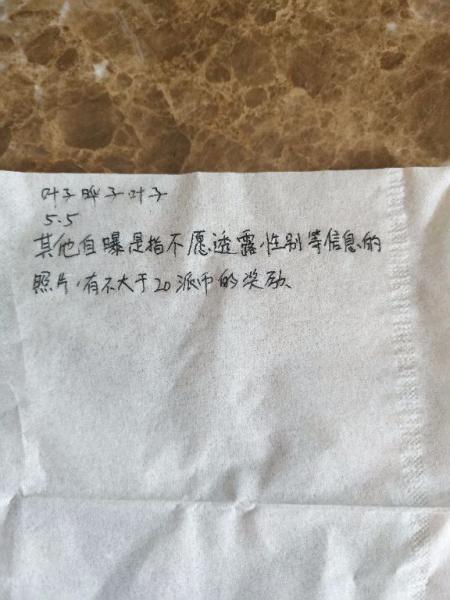 叶子叶子叶子
5.5
其他自曝是指不愿透露性别等信息的
照片,有不大于20派币的奖励、